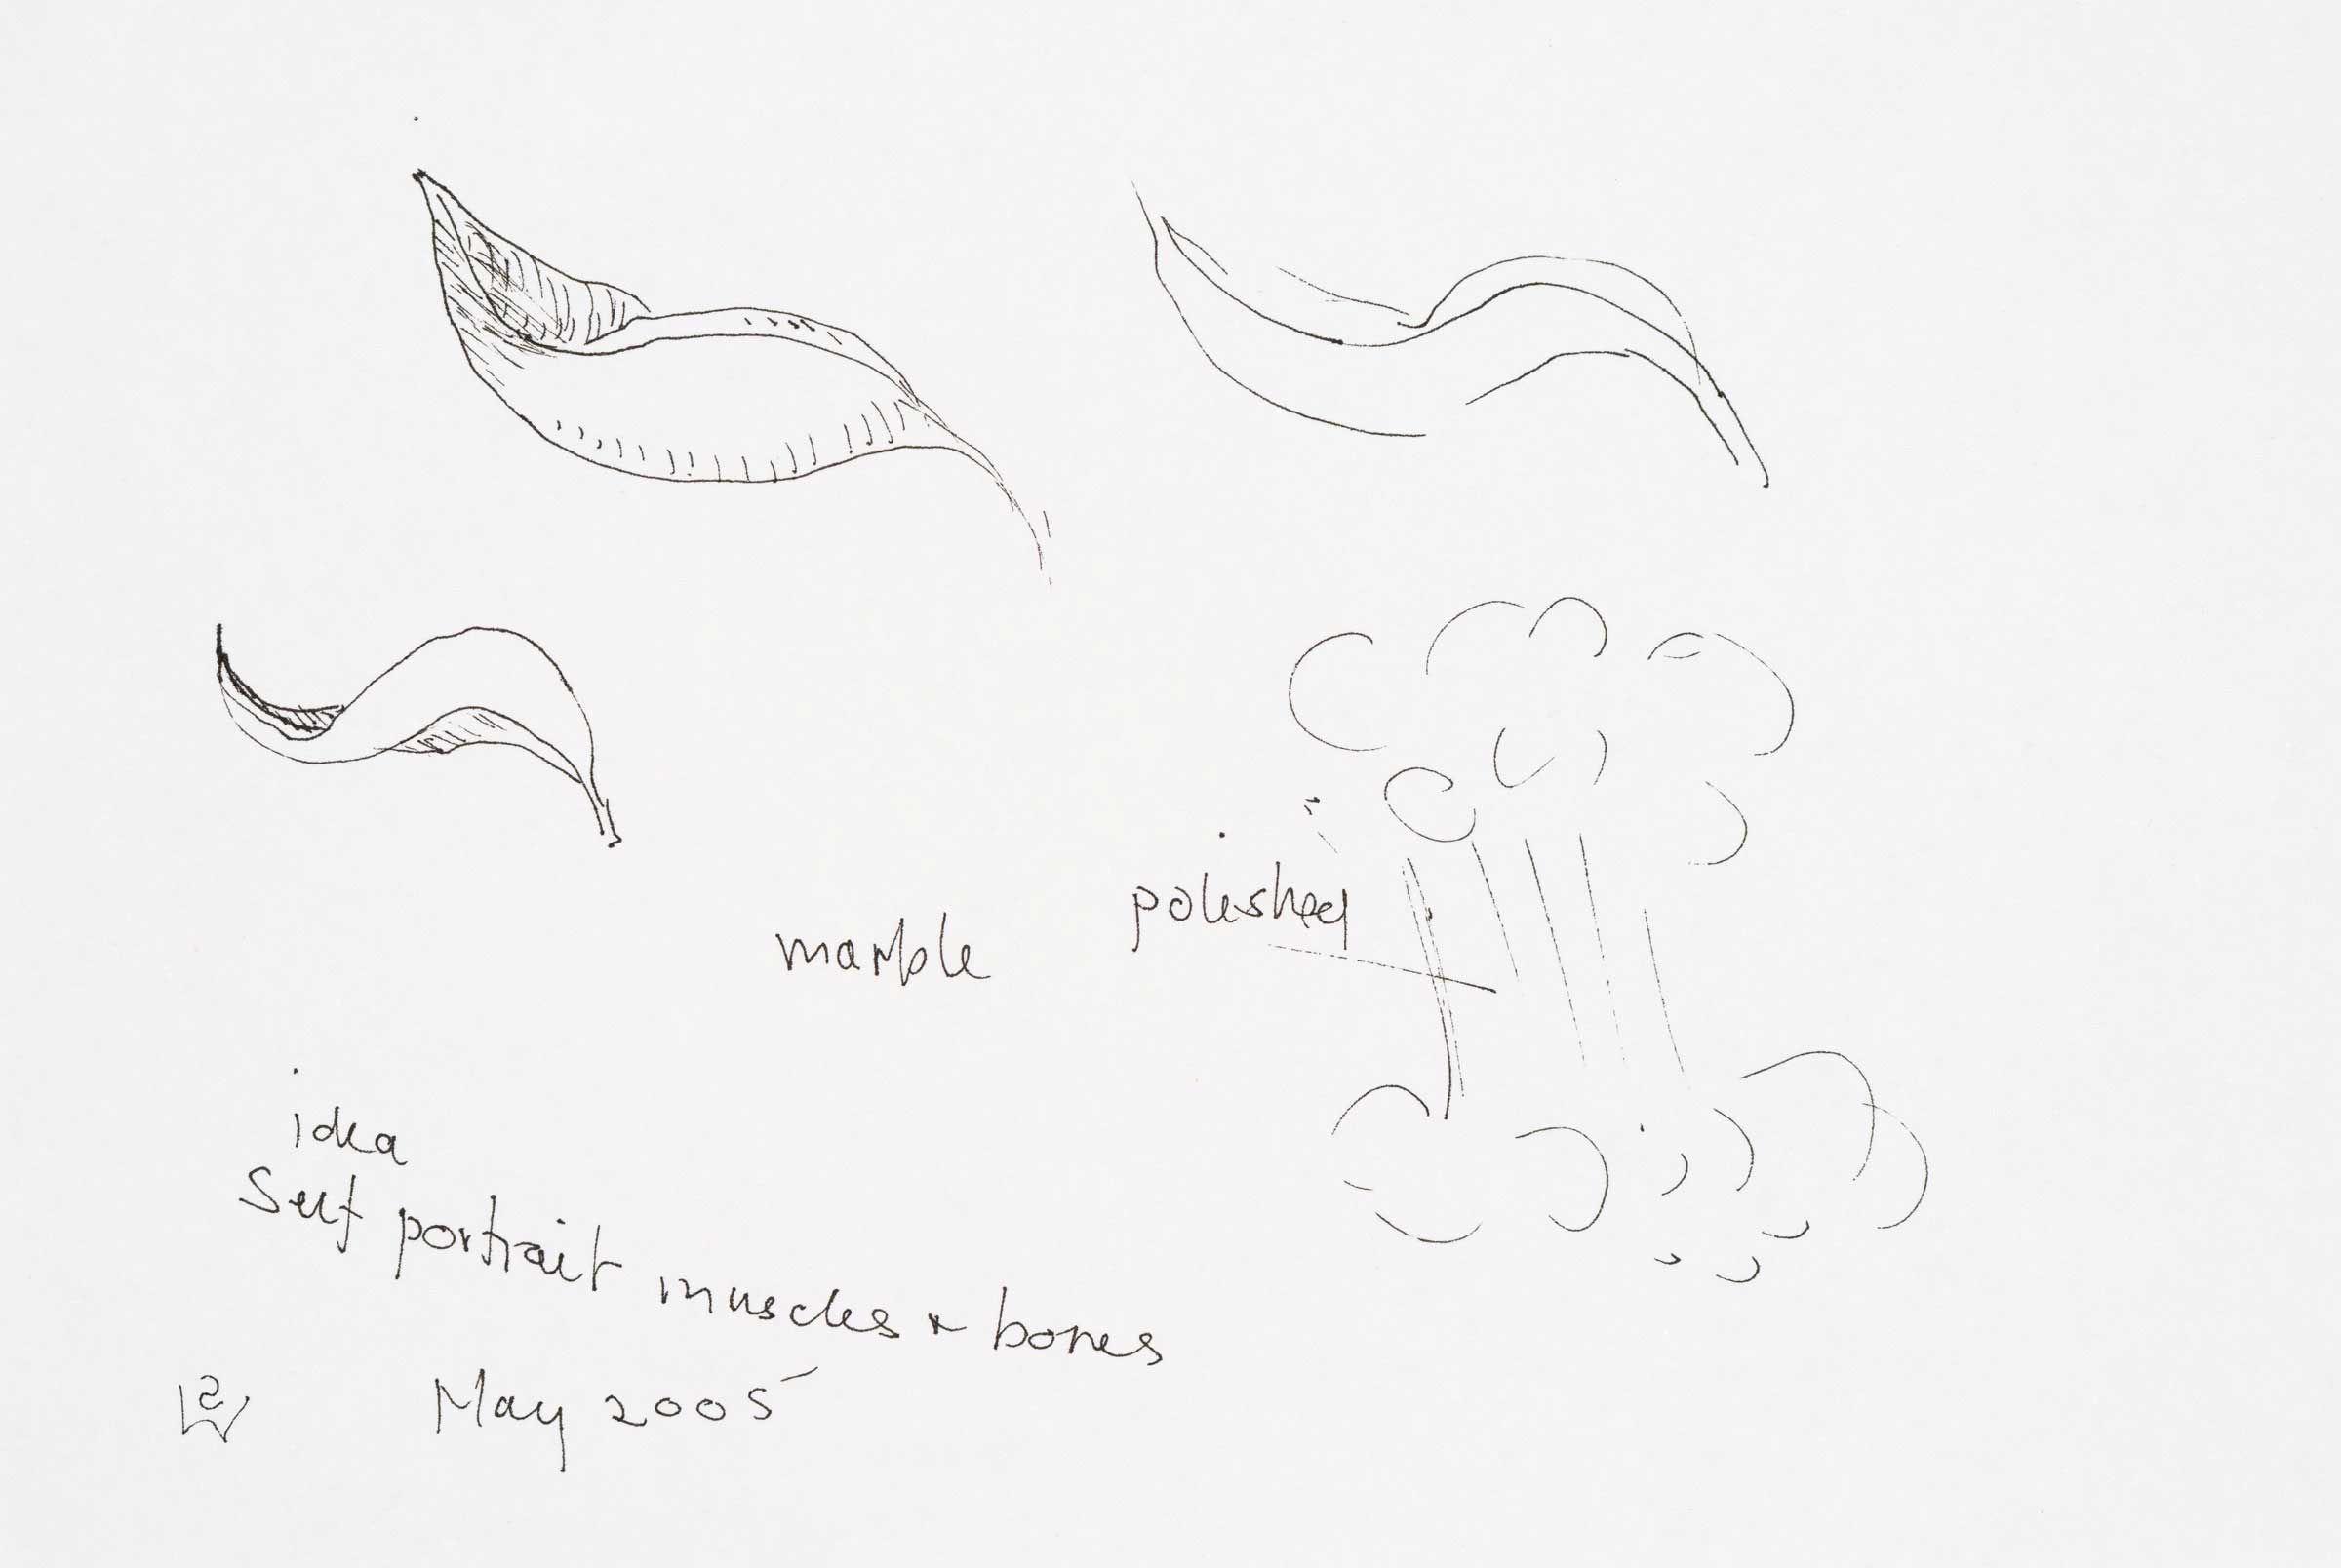 polished
marble
idea
Self portrait muscles + bones
May 2005